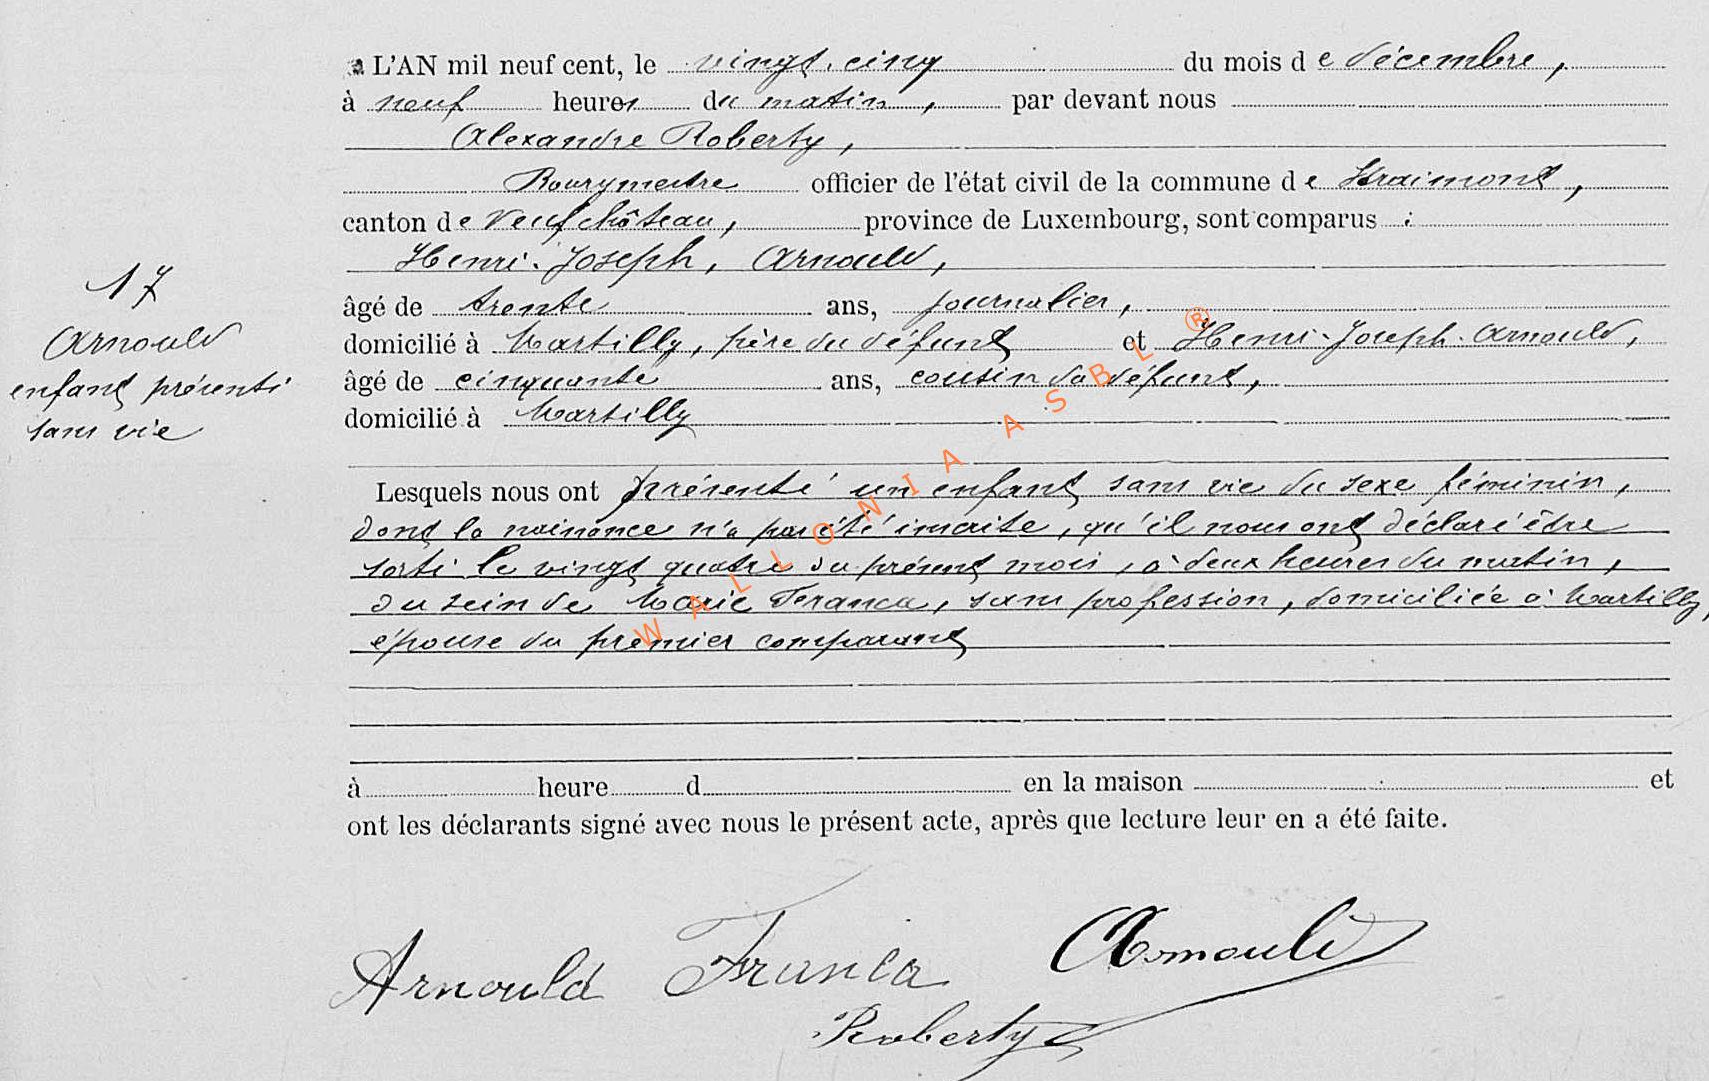 L'AN mil neuf cent, le vingt-cinq du mois de décembre,
à neuf heures du matin, par devant nous
Alexandre Roberty,
Bourgmestre officier de l'état civil de la commune de Straimont,
canton de Neufchâteau, province de Luxembourg, sont comparus :
Henri-Joseph, Arnould,
âgé de trente ans, journalier,
domicilié à Martilly, père du défunt et Henri-Joseph Arnould,
âgé de cinquante ans, cousin du défunt,
domicilié à Martilly
17
Arnould
enfant présenté
sans vie
Lesquels nous ont présenté un enfant sans vie du sexe féminin,
dont la naissance n'a pas été inscrite, qu'il nous ont déclaré être
sorti le vingt quatre du présent mois, à deux heures du matin,
du sein de Marie Franca, sans profession, domiciliée à Martilly,
épouse du premier comparant
à heure d en la maison et
ont les déclarants signé avec nous le présent acte, après que lecture leur en a été faite.
Arnould Franca Arnould
Roberty
WALLONIA ASBL ®